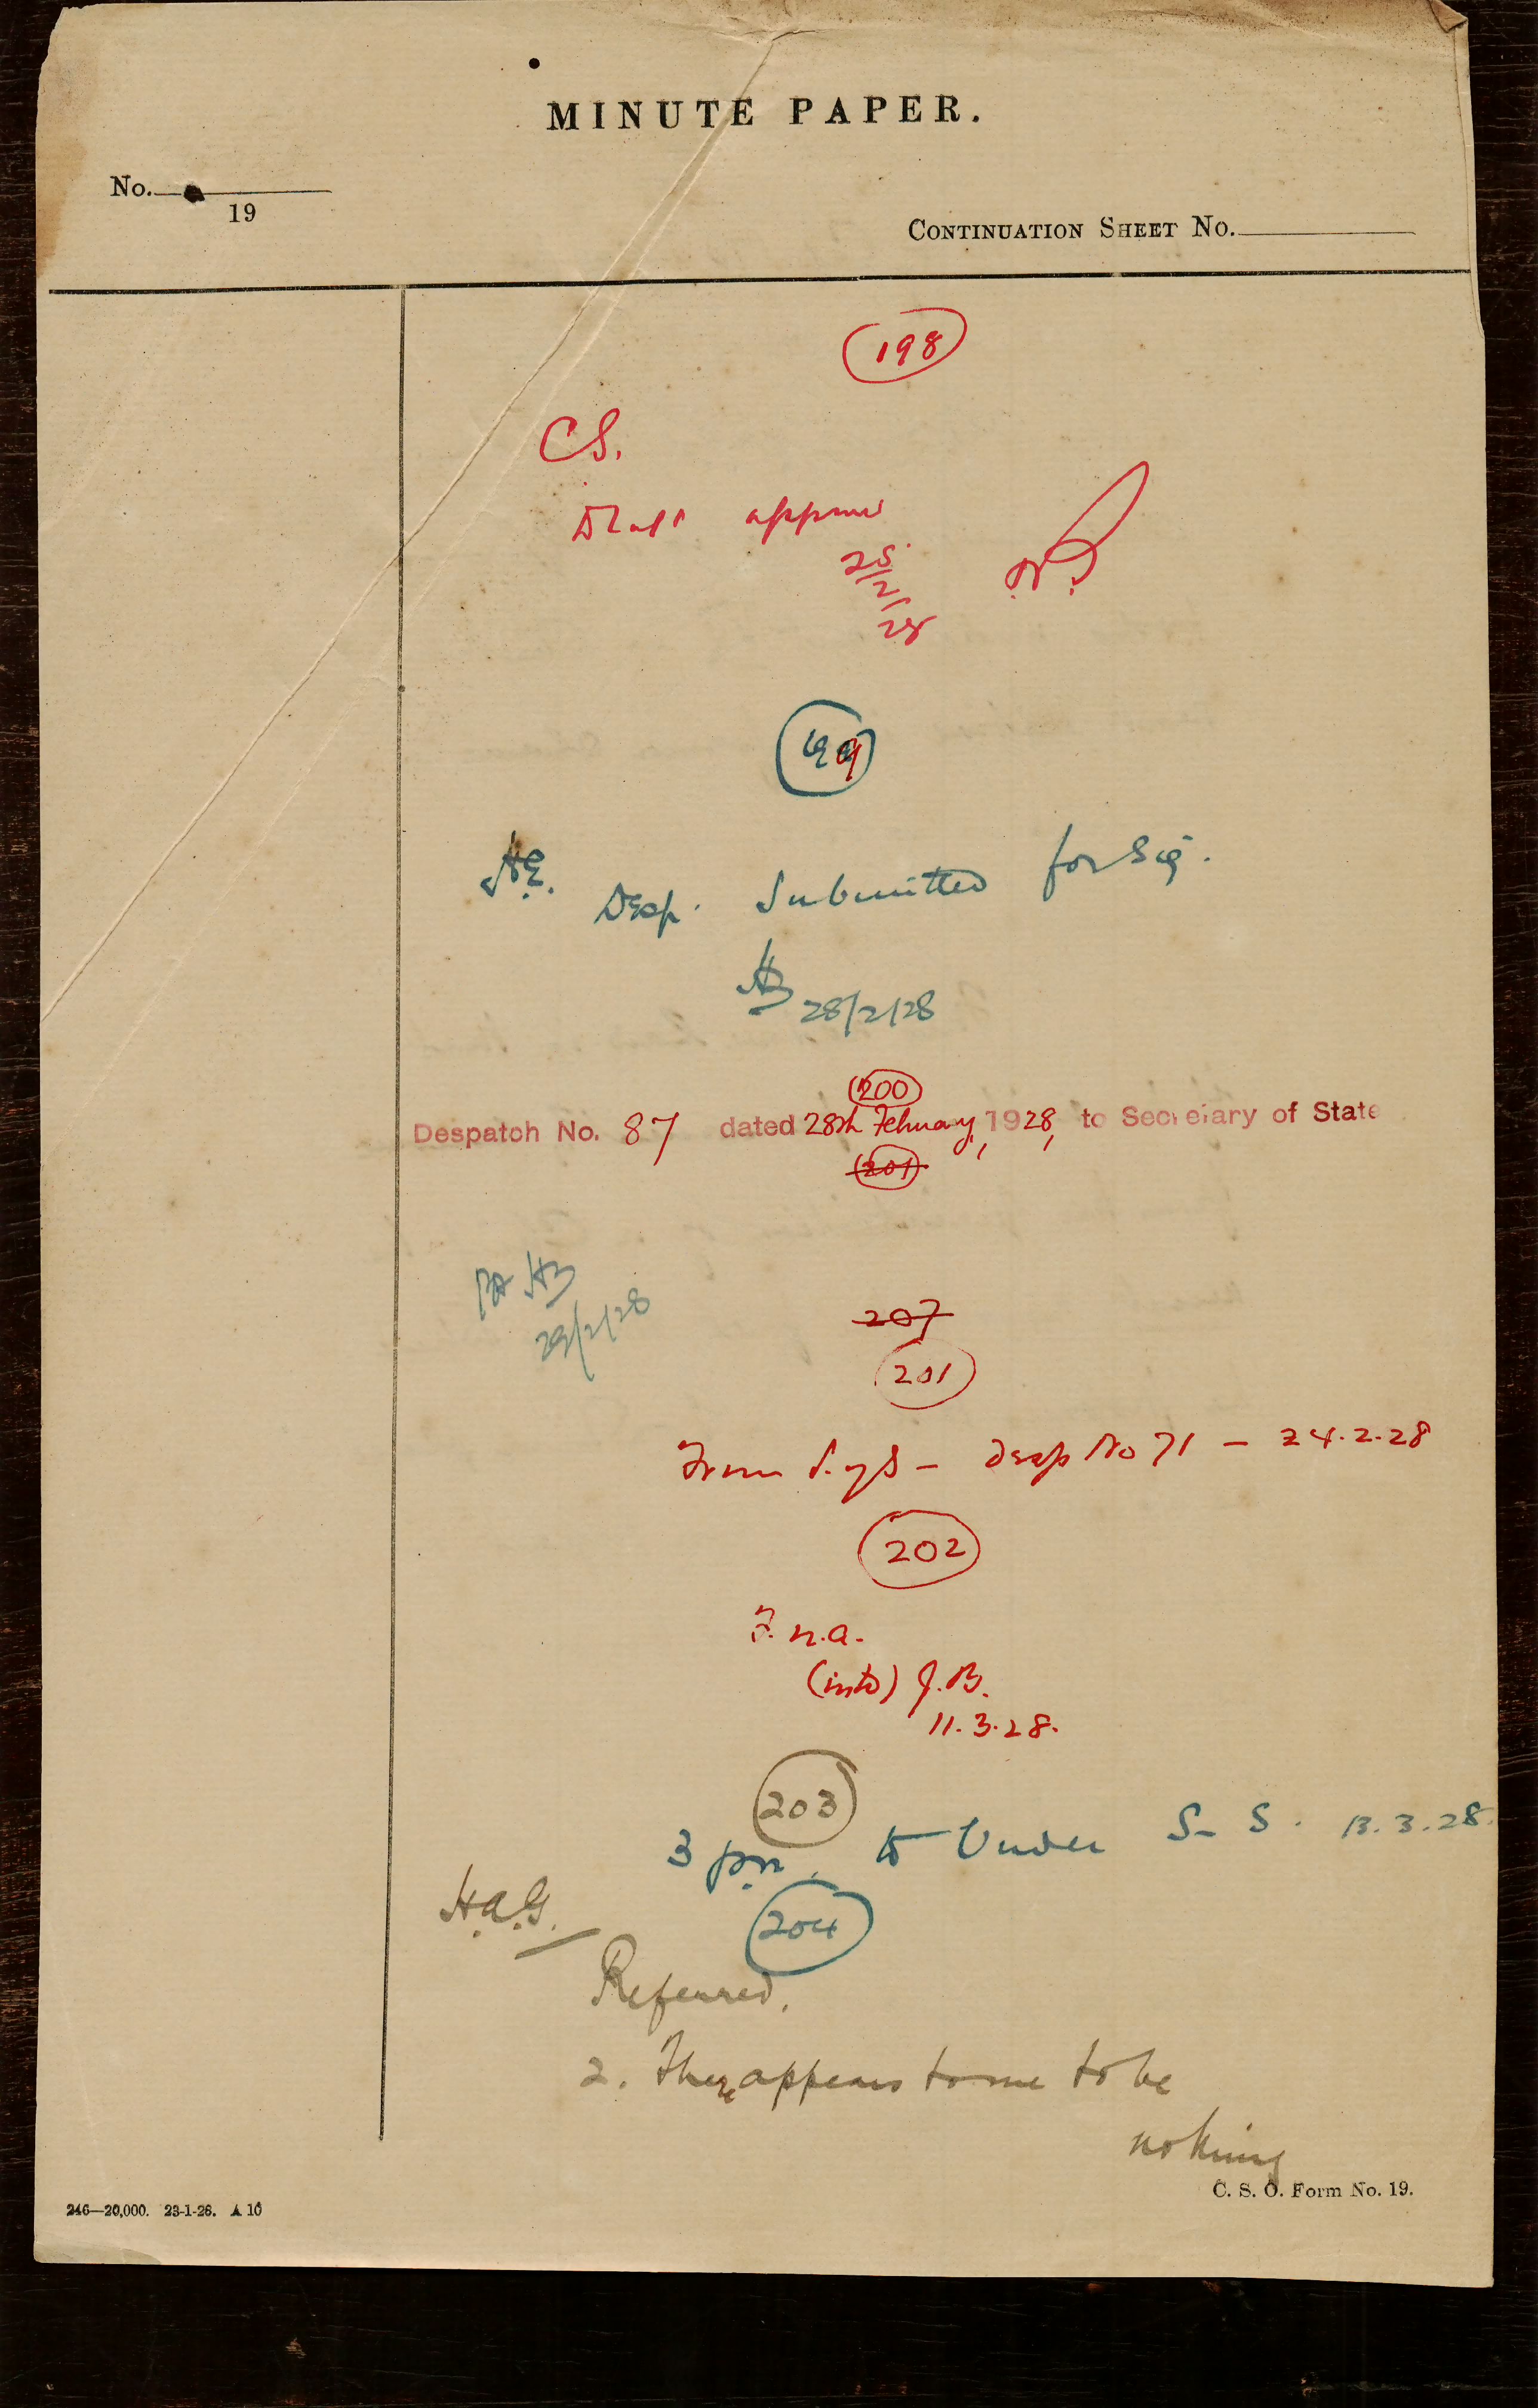 MINUTE PAPER.
No.
19
CONTINUATION SHEET NO.
198
CS.
Draft approved
25/2/28
199
HE.
Desp. Submitted for sig.
HB 28/2/28
200
Despatch No. 87 dated 28th February, 1928, to Secretary of State
201
PA HB
29/2/28
207
201
From S. of S - Desp No 71 - 24.2.28
202
? n.a.
(intd) J.B.
11.3.28.
203
3 p.m. to Under S. S. 13.3.28.
204
H.a.G.
Referred.
2. There appears to me to be
nothing
C. S. O. Form No. 19.
246—20,000. 23-1-26. A 10